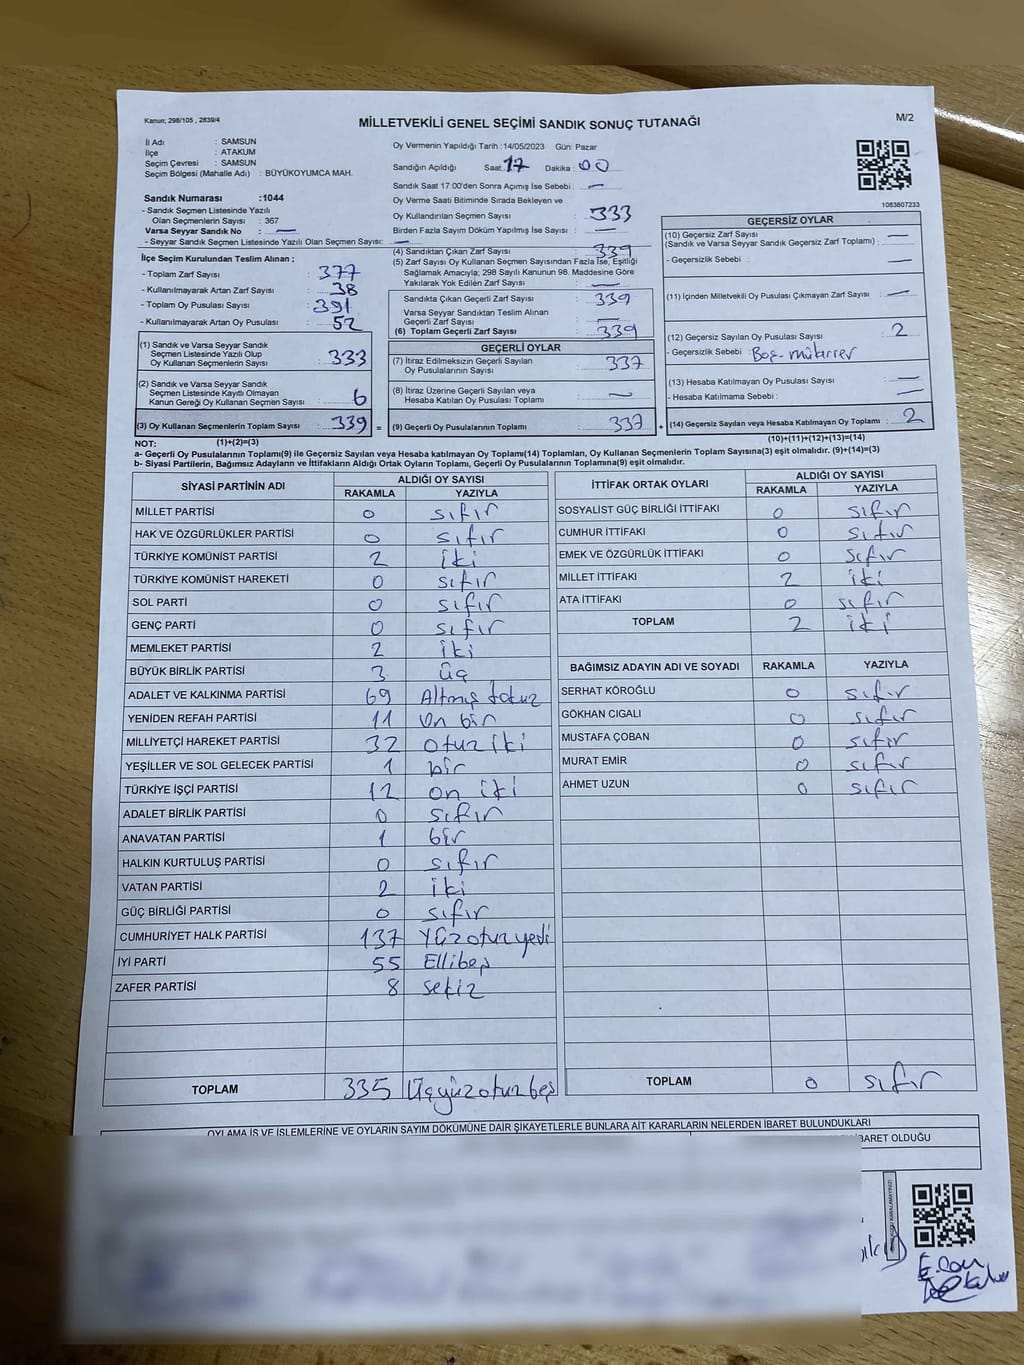 Kanun; 298/105 , 2839/4
MİLLETVEKİLİ GENEL SEÇİMİ SANDIK SONUÇ TUTANAĞI
M/2
İl Adı : SAMSUN
İlçe : ATAKUM
Seçim Çevresi : SAMSUN
Seçim Bölgesi (Mahalle Adı) : BÜYÜKOYUMCA MAH.
Sandık Numarası :1044
- Sandık Seçmen Listesinde Yazılı
Olan Seçmenlerin Sayısı : 367
Varsa Seyyar Sandık No : —
- Seyyar Sandık Seçmen Listesinde Yazılı Olan Seçmen Sayısı: —
İlçe Seçim Kurulundan Teslim Alınan ;
- Toplam Zarf Sayısı : 377
- Kullanılmayarak Artan Zarf Sayısı : 38
- Toplam Oy Pusulası Sayısı : 391
- Kullanılmayarak Artan Oy Pusulası : 52
(1) Sandık ve Varsa Seyyar Sandık
Seçmen Listesinde Yazılı Olup
Oy Kullanan Seçmenlerin Sayısı : 333
(2) Sandık ve Varsa Seyyar Sandık
Seçmen Listesinde Kayıtlı Olmayan
Kanun Gereği Oy Kullanan Seçmen Sayısı : 6
(3) Oy Kullanan Seçmenlerin Toplam Sayısı : 339 =
Oy Vermenin Yapıldığı Tarih : 14/05/2023 Gün: Pazar
Sandığın Açıldığı Saat : 17 Dakika : 00
Sandık Saat 17:00'den Sonra Açımış İse Sebebi : —
Oy Verme Saati Bitiminde Sırada Bekleyen ve
Oy Kullandırılan Seçmen Sayısı : 333
Birden Fazla Sayım Döküm Yapılmış İse Sayısı : —
(4) Sandıktan Çıkan Zarf Sayısı : 339
(5) Zarf Sayısı Oy Kullanan Seçmen Sayısından Fazla İse, Eşitliği
Sağlamak Amacıyla; 298 Sayılı Kanunun 98. Maddesine Göre
Yakılarak Yok Edilen Zarf Sayısı : —
Sandıkta Çıkan Geçerli Zarf Sayısı : 339
Varsa Seyyar Sandıktan Teslim Alınan
Geçerli Zarf Sayısı : —
(6) Toplam Geçerli Zarf Sayısı : 339
GEÇERLİ OYLAR
(7) İtiraz Edilmeksizin Geçerli Sayılan
Oy Pusulalarının Sayısı : 337
(8) İtiraz Üzerine Geçerli Sayılan veya
Hesaba Katılan Oy Pusulası Toplamı : —
(9) Geçerli Oy Pusulalarının Toplamı : 337 +
1083607233
GEÇERSİZ OYLAR
(10) Geçersiz Zarf Sayısı : —
(Sandık ve Varsa Seyyar Sandık Geçersiz Zarf Toplamı)
- Geçersizlik Sebebi : —
(11) İçinden Milletvekili Oy Pusulası Çıkmayan Zarf Sayısı : —
(12) Geçersiz Sayılan Oy Pusulası Sayısı : 2
- Geçersizlik Sebebi : Boş-mükerrer
(13) Hesaba Katılmayan Oy Pusulası Sayısı : —
- Hesaba Katılmama Sebebi : —
(14) Geçersiz Sayılan veya Hesaba Katılmayan Oy Toplamı : 2
(10)+(11)+(12)+(13)=(14)
NOT: (1)+(2)=(3)
a- Geçerli Oy Pusulalarının Toplamı(9) ile Geçersiz Sayılan veya Hesaba Katılmayan Oy Toplamı(14) Toplamları, Oy Kullanan Seçmenlerin Toplam Sayısına(3) eşit olmalıdır. (9)+(14)=(3)
b- Siyasi Partilerin, Bağımsız Adayların ve İttifakların Aldığı Ortak Oyların Toplamı, Geçerli Oy Pusulalarının Toplamına(9) eşit olmalıdır.
SİYASİ PARTİNİN ADI ALDIĞI OY SAYISI
RAKAMLA YAZIYLA
MİLLET PARTİSİ 0 sıfır
HAK VE ÖZGÜRLÜKLER PARTİSİ 0 sıfır
TÜRKİYE KOMÜNİST PARTİSİ 2 iki
TÜRKİYE KOMÜNİST HAREKETİ 0 sıfır
SOL PARTİ 0 sıfır
GENÇ PARTİ 0 sıfır
MEMLEKET PARTİSİ 2 iki
BÜYÜK BİRLİK PARTİSİ 3 üç
ADALET VE KALKINMA PARTİSİ 69 Altmış dokuz
YENİDEN REFAH PARTİSİ 11 On bir
MİLLİYETÇİ HAREKET PARTİSİ 32 otuz iki
YEŞİLLER VE SOL GELECEK PARTİSİ 1 bir
TÜRKİYE İŞÇİ PARTİSİ 12 on iki
ADALET BİRLİK PARTİSİ 0 sıfır
ANAVATAN PARTİSİ 1 bir
HALKIN KURTULUŞ PARTİSİ 0 sıfır
VATAN PARTİSİ 2 iki
GÜÇ BİRLİĞİ PARTİSİ 0 sıfır
CUMHURİYET HALK PARTİSİ 137 Yüzotuzyedi
İYİ PARTİ 55 Ellibeş
ZAFER PARTİSİ 8 sekiz
TOPLAM 335 Üçyüzotuzbeş
İTTİFAK ORTAK OYLARI ALDIĞI OY SAYISI
RAKAMLA YAZIYLA
SOSYALİST GÜÇ BİRLİĞİ İTTİFAKI 0 sıfır
CUMHUR İTTİFAKI 0 sıfır
EMEK VE ÖZGÜRLÜK İTTİFAKI 0 sıfır
MİLLET İTTİFAKI 2 iki
ATA İTTİFAKI 0 sıfır
TOPLAM 2 iki
BAĞIMSIZ ADAYIN ADI VE SOYADI RAKAMLA YAZIYLA
SERHAT KÖROĞLU 0 sıfır
GÖKHAN CIGALI 0 sıfır
MUSTAFA ÇOBAN 0 sıfır
MURAT EMİR 0 sıfır
AHMET UZUN 0 sıfır
TOPLAM 0 sıfır
OYLAMA İŞ VE İŞLEMLERİNE VE OYLARIN SAYIM DÖKÜMÜNE DAİR ŞİKAYETLERLE BUNLARA AİT KARARLARIN NELERDEN İBARET BULUNDUKLARI
İBARET OLDUĞU